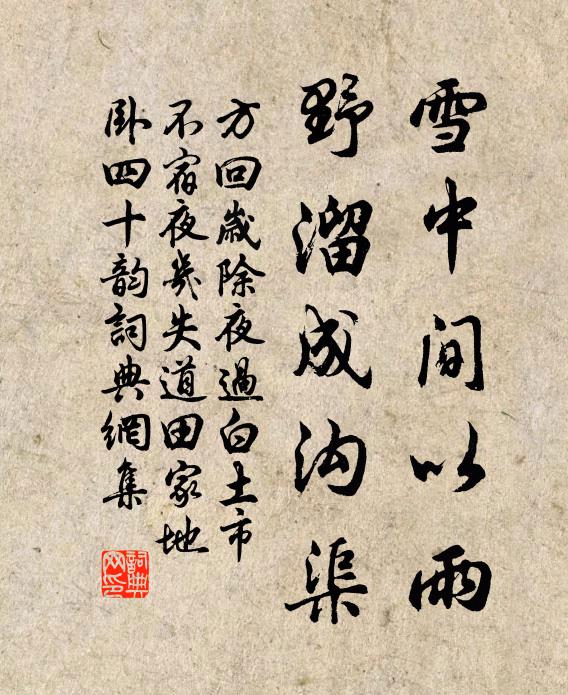 雪中间以雨
野溜成沟渠
方回歲除夜過白土市
不宿夜幾失道田家地
卧四十韵詞典網集
詞典網印